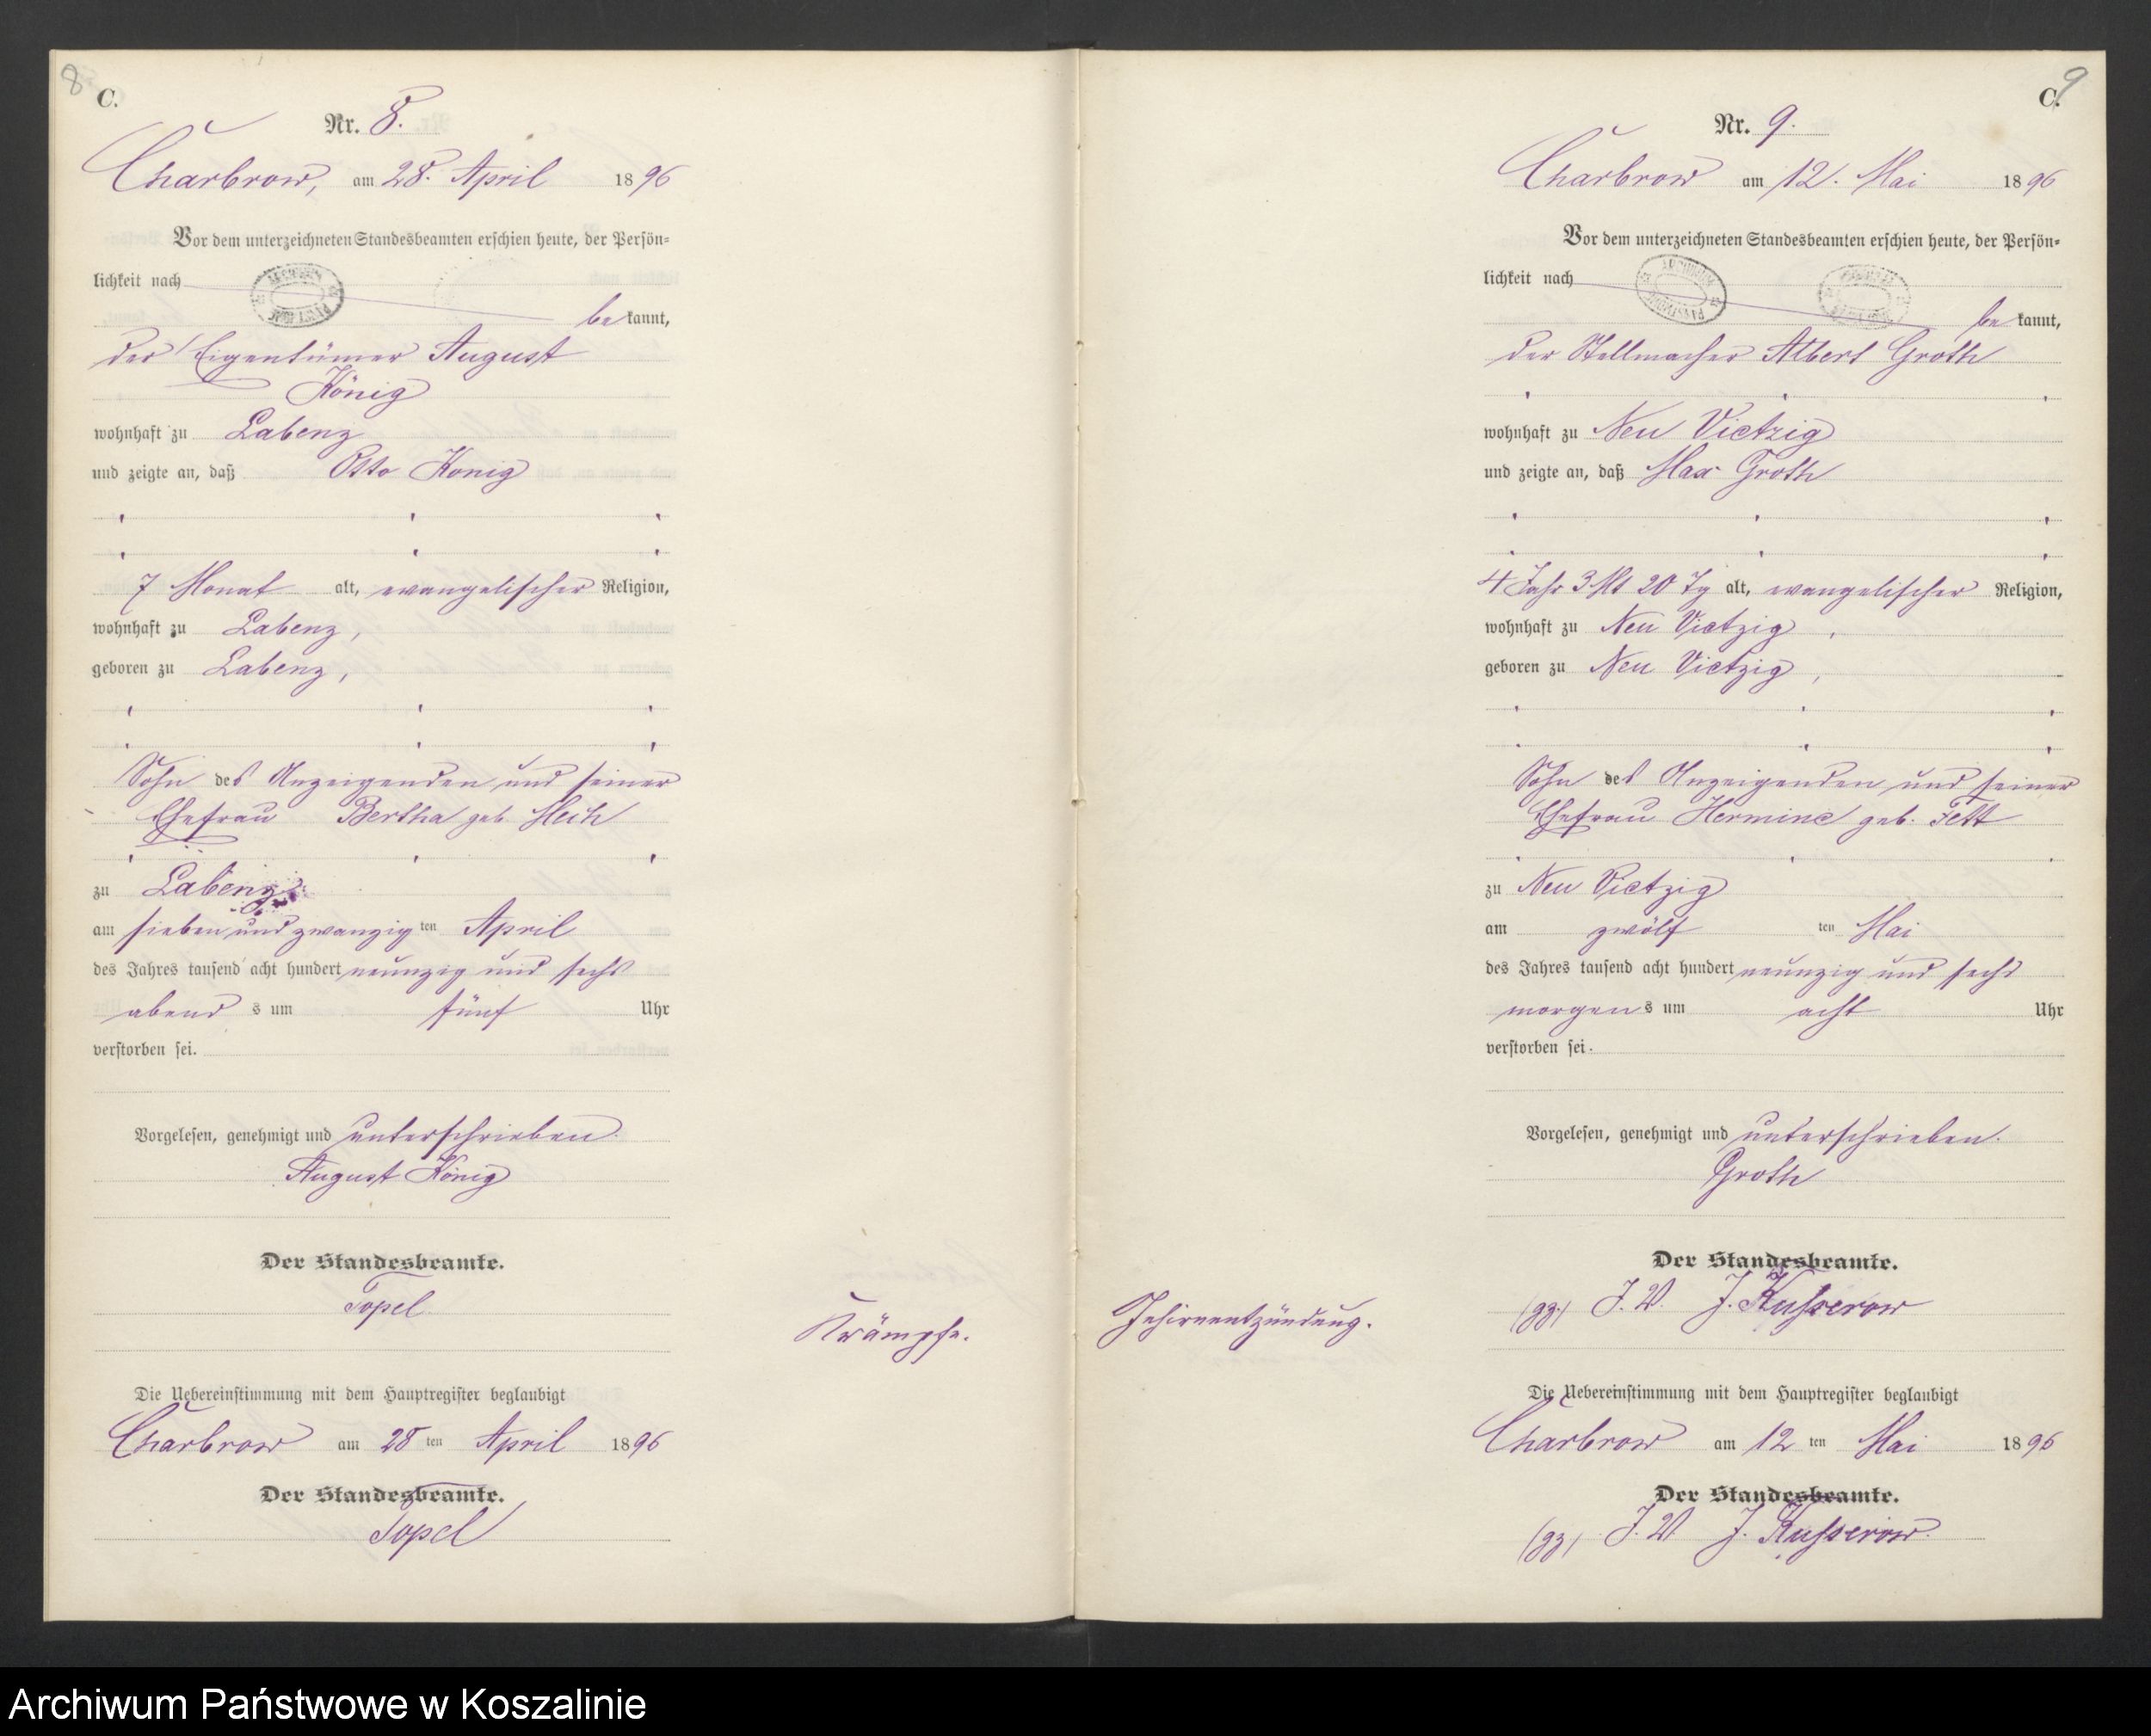 8
C.
Nr. 8.
Charbrow, am 28. April 1896
Vor dem unterzeichneten Standesbeamten erschien heute, der Persön-
lichkeit nach
be kannt,
der Eigentümer August
König
wohnhaft zu Labenz
und zeigte an, daß Otto König
7 Monat alt, evangelischer Religion,
wohnhaft zu Labenz,
geboren zu Labenz,
Sohn des Anzeigenden und seiner
Ehefrau Bertha geb.
zu Labenz
am sieben und zwanzig ten April
des Jahres tausend acht hundert neunzig und sechs
abend s um fünf Uhr
verstorben sei.
Vorgelesen, genehmigt und unterschrieben.
August König
Der Standesbeamte.
Topel
Krämpfe.
Die Uebereinstimmung mit dem Hauptregister beglaubigt
Charbrow am 28 ten April 1896
Der Standesbeamte.
Topel
9
C.
Nr. 9.
Charbrow am 12. Mai 1896
Vor dem unterzeichneten Standesbeamten erschien heute, der Persön-
lichkeit nach
be kannt,
der Stellmacher Albert Groth
wohnhaft zu Neu Vietzig
und zeigte an, daß Max Groth
4 Jahr 3 Mt 20 Tg alt, evangelischer Religion,
wohnhaft zu Neu Vietzig,
geboren zu Neu Vietzig,
Sohn des Anzeigenden und seiner
Ehefrau Hermine geb. Fett
zu Neu Vietzig
am zwölf ten Mai
des Jahres tausend acht hundert neunzig und sechs
morgen s um acht Uhr
verstorben sei.
Vorgelesen, genehmigt und unterschrieben.
Groth
Der Standesbeamte.
(gz.) J. V. J. Kusserow
Gehirnentzündung.
Die Uebereinstimmung mit dem Hauptregister beglaubigt
Charbrow am 12 ten Mai 1896
Der Standesbeamte.
(gz) J. V. J. Kusserow.
Archiwum Państwowe w Koszalinie